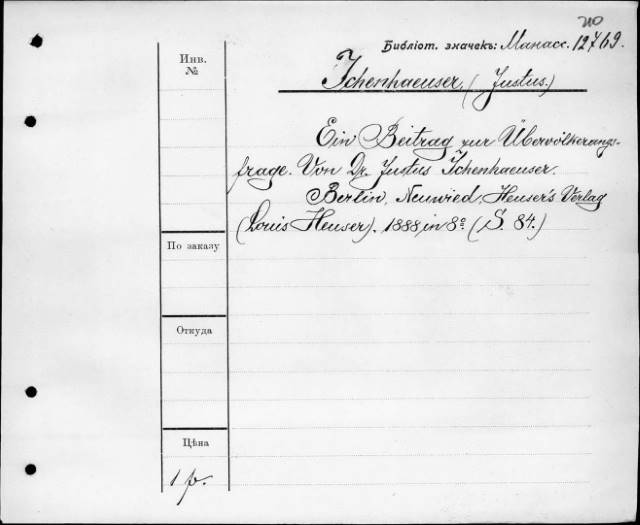 ЛО
Библіот. значекъ: Манасс. 12769.
Инв.
№
Ichenhaeuser, (Justus.)
Ein Beitrag zur Übervölkerungs-
frage. Von Dr. Justus Ichenhaeuser.
Berlin, Neuwied, Heuser's Verlag
(Louis Heuser). 1888, in 8º (S. 84.)
По заказу
Откуда
Цѣна
1 р.